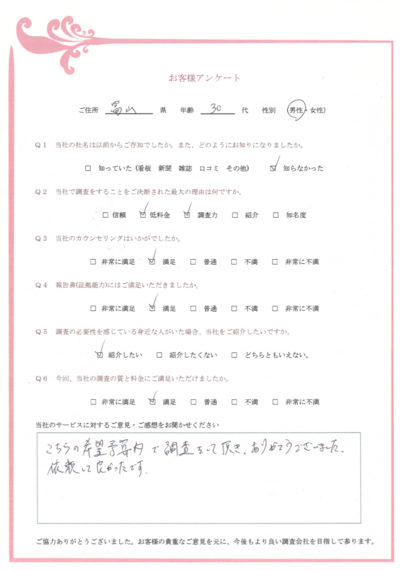 お客様アンケート
ご住所 富山 県 年齢 30 代 性別 (男性・女性)
Q1 当社の社名は以前からご存知でしたか。また、どのようにお知りになりましたか。
□ 知っていた (看板 新聞 雑誌 口コミ その他) ☑ 知らなかった
Q2 当社で調査をすることをご決断された最大の理由は何ですか。
□ 信頼 ☑ 低料金 ☑ 調査力 □ 紹介 □ 知名度
Q3 当社のカウンセリングはいかがでしたか。
□ 非常に満足 ☑ 満足 □ 普通 □ 不満 □ 非常に不満
Q4 報告書(証拠能力)にはご満足いただきましたか。
□ 非常に満足 ☑ 満足 □ 普通 □ 不満 □ 非常に不満
Q5 調査の必要性を感じている身近な人がいた場合、当社をご紹介したいですか。
☑ 紹介したい □ 紹介したくない □ どちらともいえない。
Q6 今回、当社の調査の質と料金にご満足いただけましたか。
□ 非常に満足 ☑ 満足 □ 普通 □ 不満 □ 非常に不満
当社のサービスに対するご意見・ご感想をお聞かせください
こちらの希望予算内で調査をして頂き、ありがとうございました。
依頼して良かったです。
ご協力ありがとうございました。お客様の貴重なご意見を元に、今後もより良い調査会社を目指して参ります。